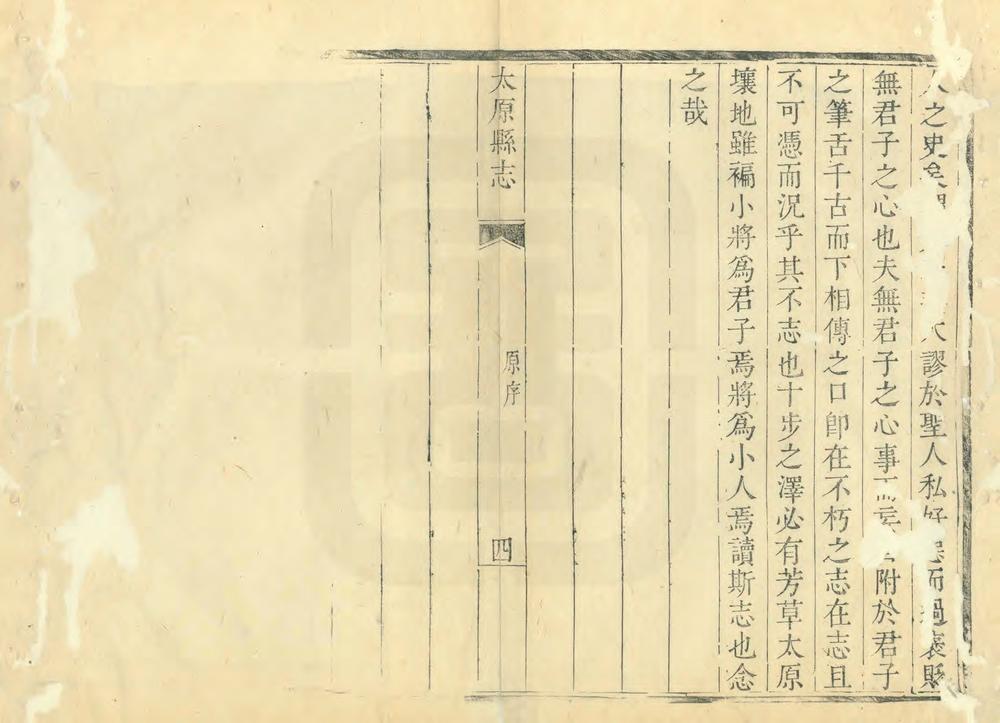 人之史矣謬於聖人私好而過褒貶
無君子之心也夫無君子之心事附於君子
之筆舌千古而下相傳之口卽在不朽之志在志且
不可憑而況乎其不志也十步之澤必有芳草太原
壤地雖褊小將爲君子焉將爲小人焉讀斯志也念
之哉
太原縣志
原序
四